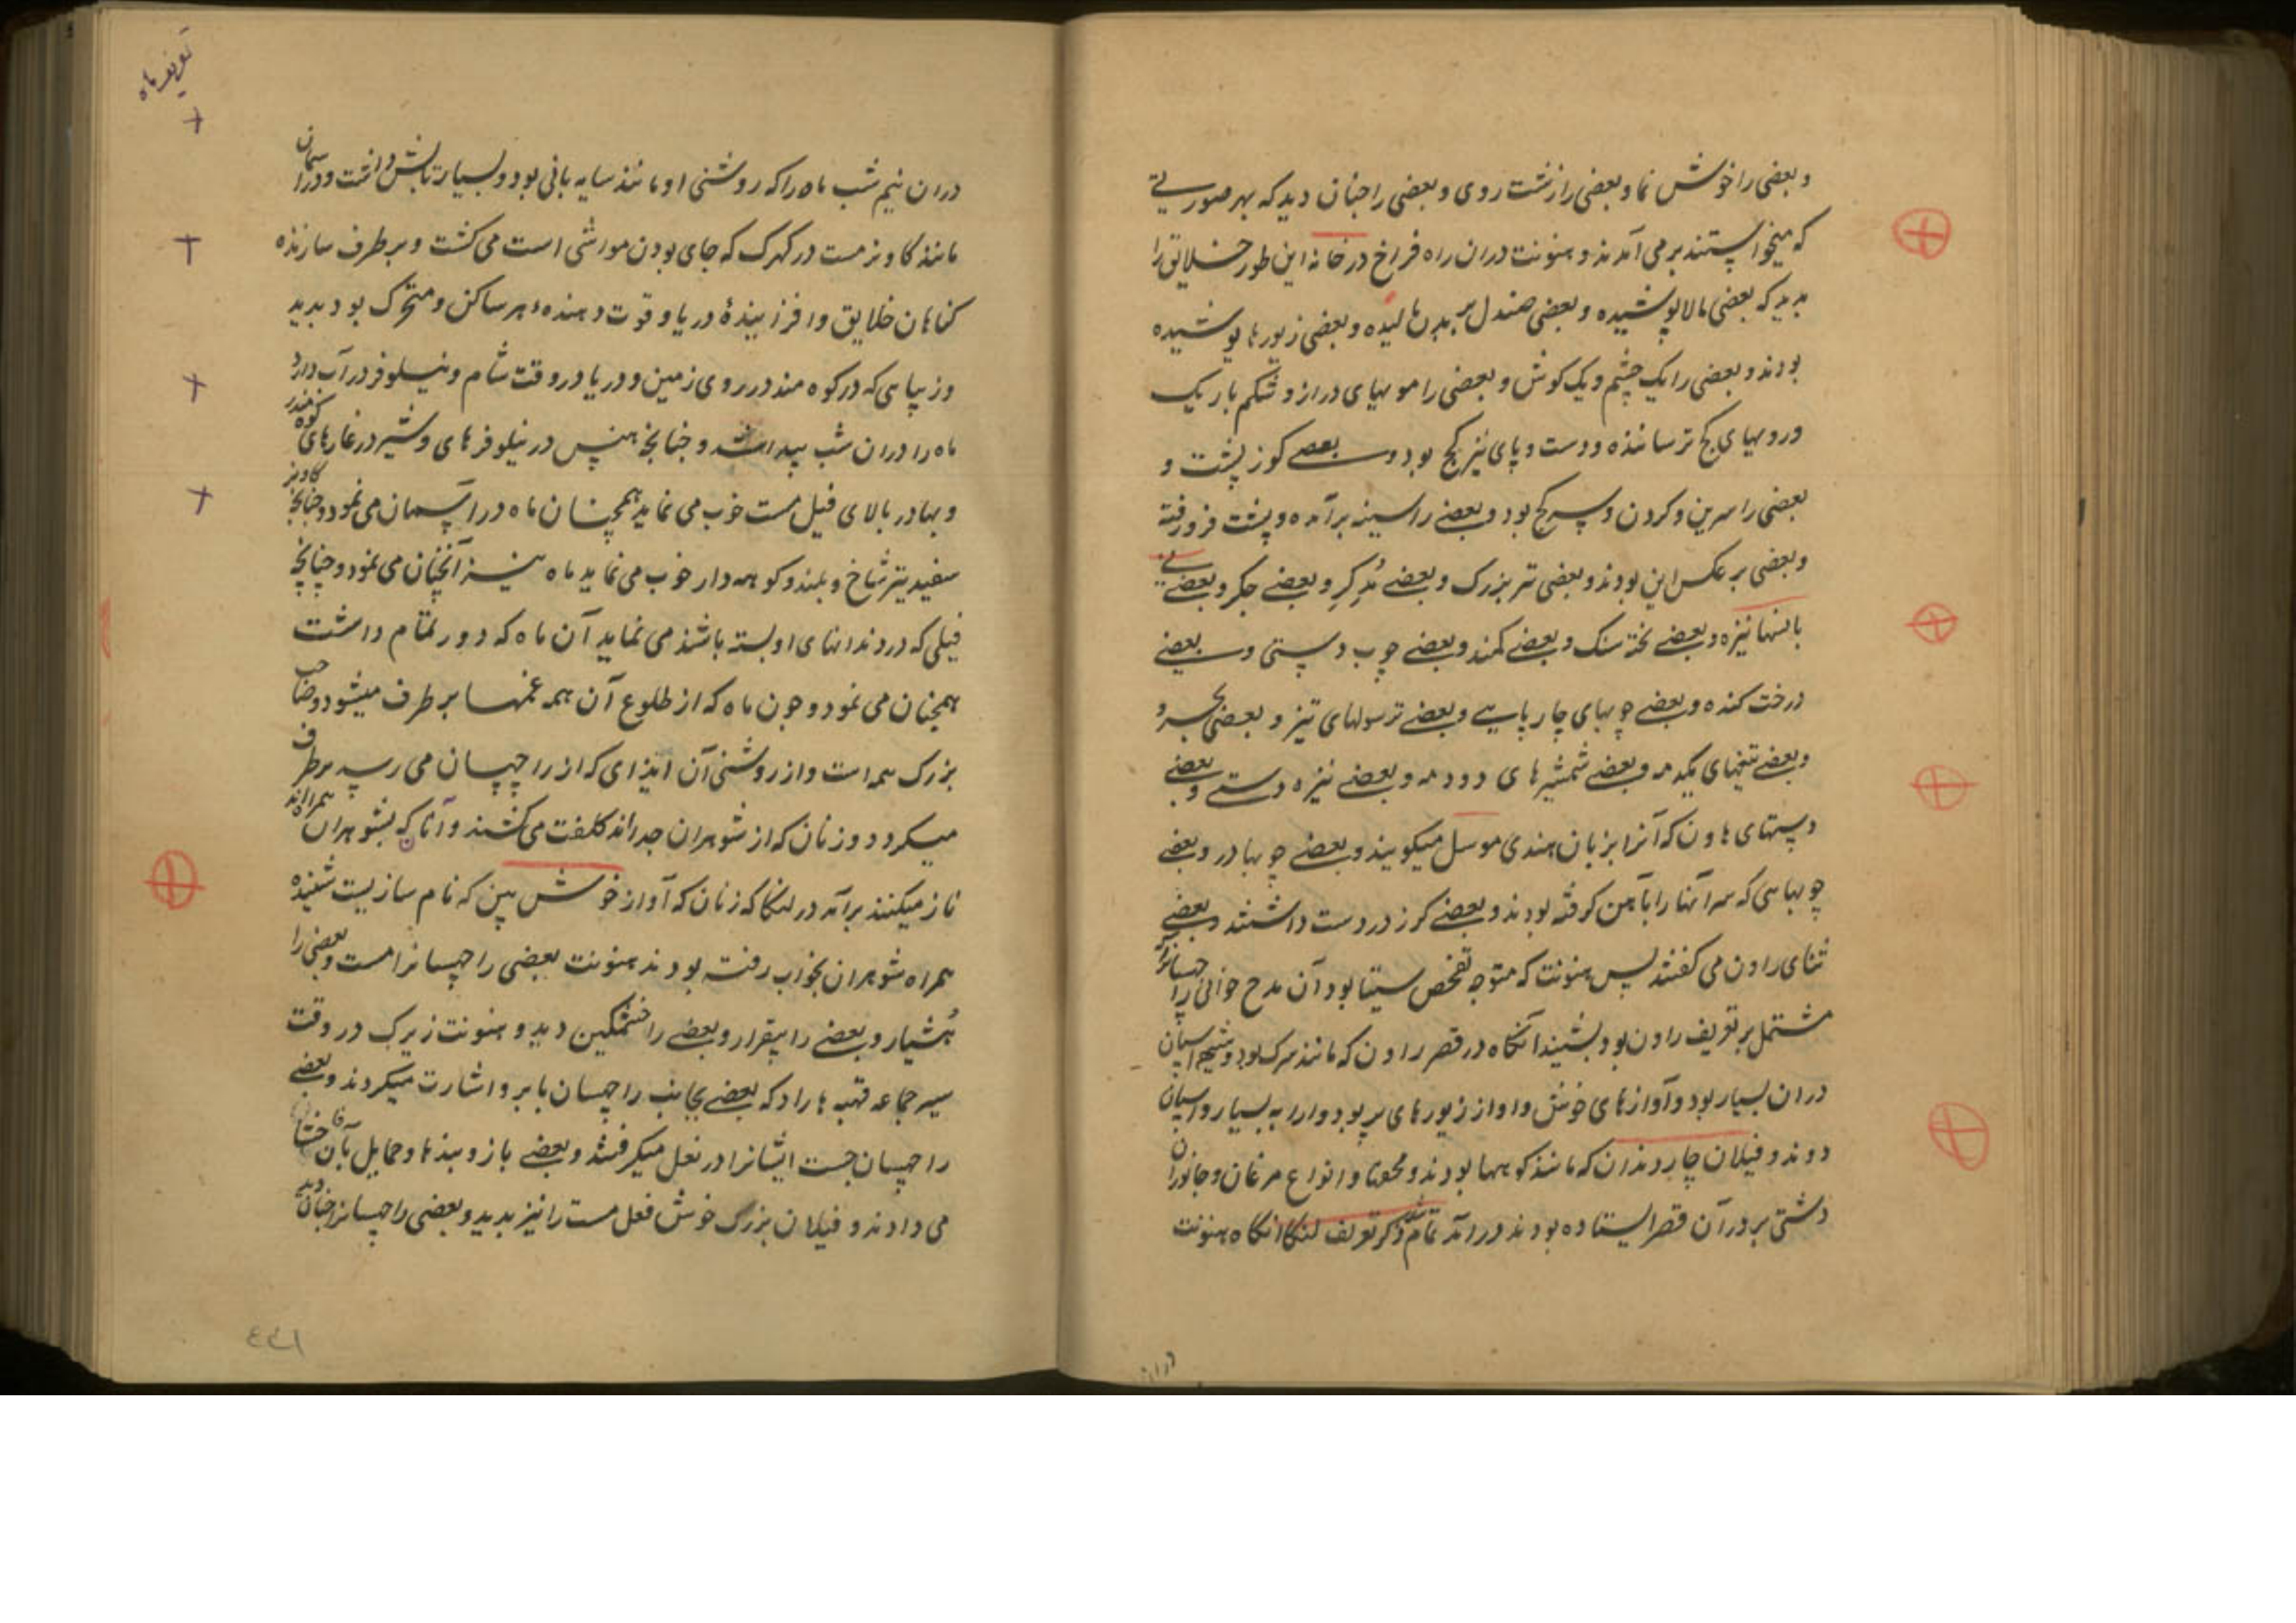 و بعضی را خوش نما و بعضی را زشت روی و بعضی را چنان دید که بهر صورتی
که میخواستند برمی آمدند و هنونت دران راه فراخ در خانه این طور خلایق را
بدید که بعضی مالا پوشیده و بعضی صندل بر بدن مالیده و بعضی زیورها پوشیده
بودند و بعضی را یک چشم و یک کوش و بعضی را مویهای دراز و شکم باریک
و رویهای کج ترسانیده و دست و پای نیز کج بود و بعضی کوز پشت و
بعضی را سرین و کردن و سر کج بود و بعضی را سینه برآمده و پشت فرو رفته
و بعضی بر عکس این بودند و بعضی تبر بزرک و بعضی مدکر و بعضی چکر و بعضی
بانسها نیزه و بعضی تخته سنک و بعضی کمند و بعضی چوب دستی و بعضی
درخت کنده و بعضی چوبهای چار پایی و بعضی ترسولهای تیز و بعضی بجر و
و بعضی تیغهای یکدمه و بعضی شمشیرهای دودمه و بعضی نیزه دستی و بعضی
دستهای هاون که آنرا بزبان هندی موسل میکویند و بعضی چوبها در و بعضی
چوبهایی که سر آنها را بآهن کرفته بودند و بعضی کرز در دست داشتند و بعضی
ثنای راون می کفتند پس هنونت که متوجه تفحص سیتا بود آن مدح خوانی راچهسانرا که
مشتمل بر تعریف راون بود بشنید آنکاه در قصر راون که مانند سرک بود و شیهه اسپان
دران بسیار بود و آوازهای خوش و آواز زیورهای پر بود و ارابه بسیار و اسپان
دونده و فیلان چار دندان که مانند کوهها بودند و محوتا و انواع مرغان و جانوران
دشتی بر در آن قصر ایستاده بودند درآمد تمام شد ذکر تعریف لنکا آنکاه هنونت
دران
تعریف ماه
دران نیم شب ماه را که روشنی او مانند سایه بانی بود و بسیار تابش داشت و در آسمان
مانند کاو نر مست در کهرک که جای بودن مواشی است می کشت و برطرف سازنده
کناهان خلایق و افزایندهٔ دریا و قوت دهندهٔ هر ساکن و متحرک بود بدید
و زیبایی که در کوه مندر بر روی زمین و در دریا در وقت شام و نیلوفر در آب دارد
ماه را دران شب پیدا شد و چنانچه هنس در نیلوفرهای و شیر در غارهای کوه مندر
و بهادر بالای فیل مست خوب می نماید همچنان ماه در آسمان می نمود و چنانچه کاو نر
سفید تیز شاخ و بلند و کوهه دار خوب می نماید ماه نیز آنچنان می نمود و چنانچه
فیلی که در دندانهای او بسته باشند می نماید آن ماه که دور تمام داشت
همچنان می نمود و چون ماه که از طلوع آن همه غمها بر طرف میشود و صاحب
بزرک همه است و از روشنی آن ایذای که از راچهسان می رسد برطرف
میکردد و زنان که از شوهران جدااند کلفت می کشند و آنانکه بشوهران همراه اند
ناز میکنند برآمد در لنکا که زنان که آواز خوش بین که نام سازیست شنیده
همراه شوهران بخواب رفته بودند هنونت بعضی راچهسانرا مست و بعضی را
هشیار و بعضی را بیقرار و بعضی را خشمکین دید و هنونت زیرک در وقت
سیر جماعه قحبه ها را دید که بعضی بجانب راچهسان بابرو اشارت میکردند و بعضی
راچهسان جست ایشانرا در بغل میکرفتند و بعضی بازوبندها و حمایل بآن
می دادند و فیلان بزرک خوش فعل مست را نیز بدید و بعضی راچهسانرا چنان دید
٤٤١